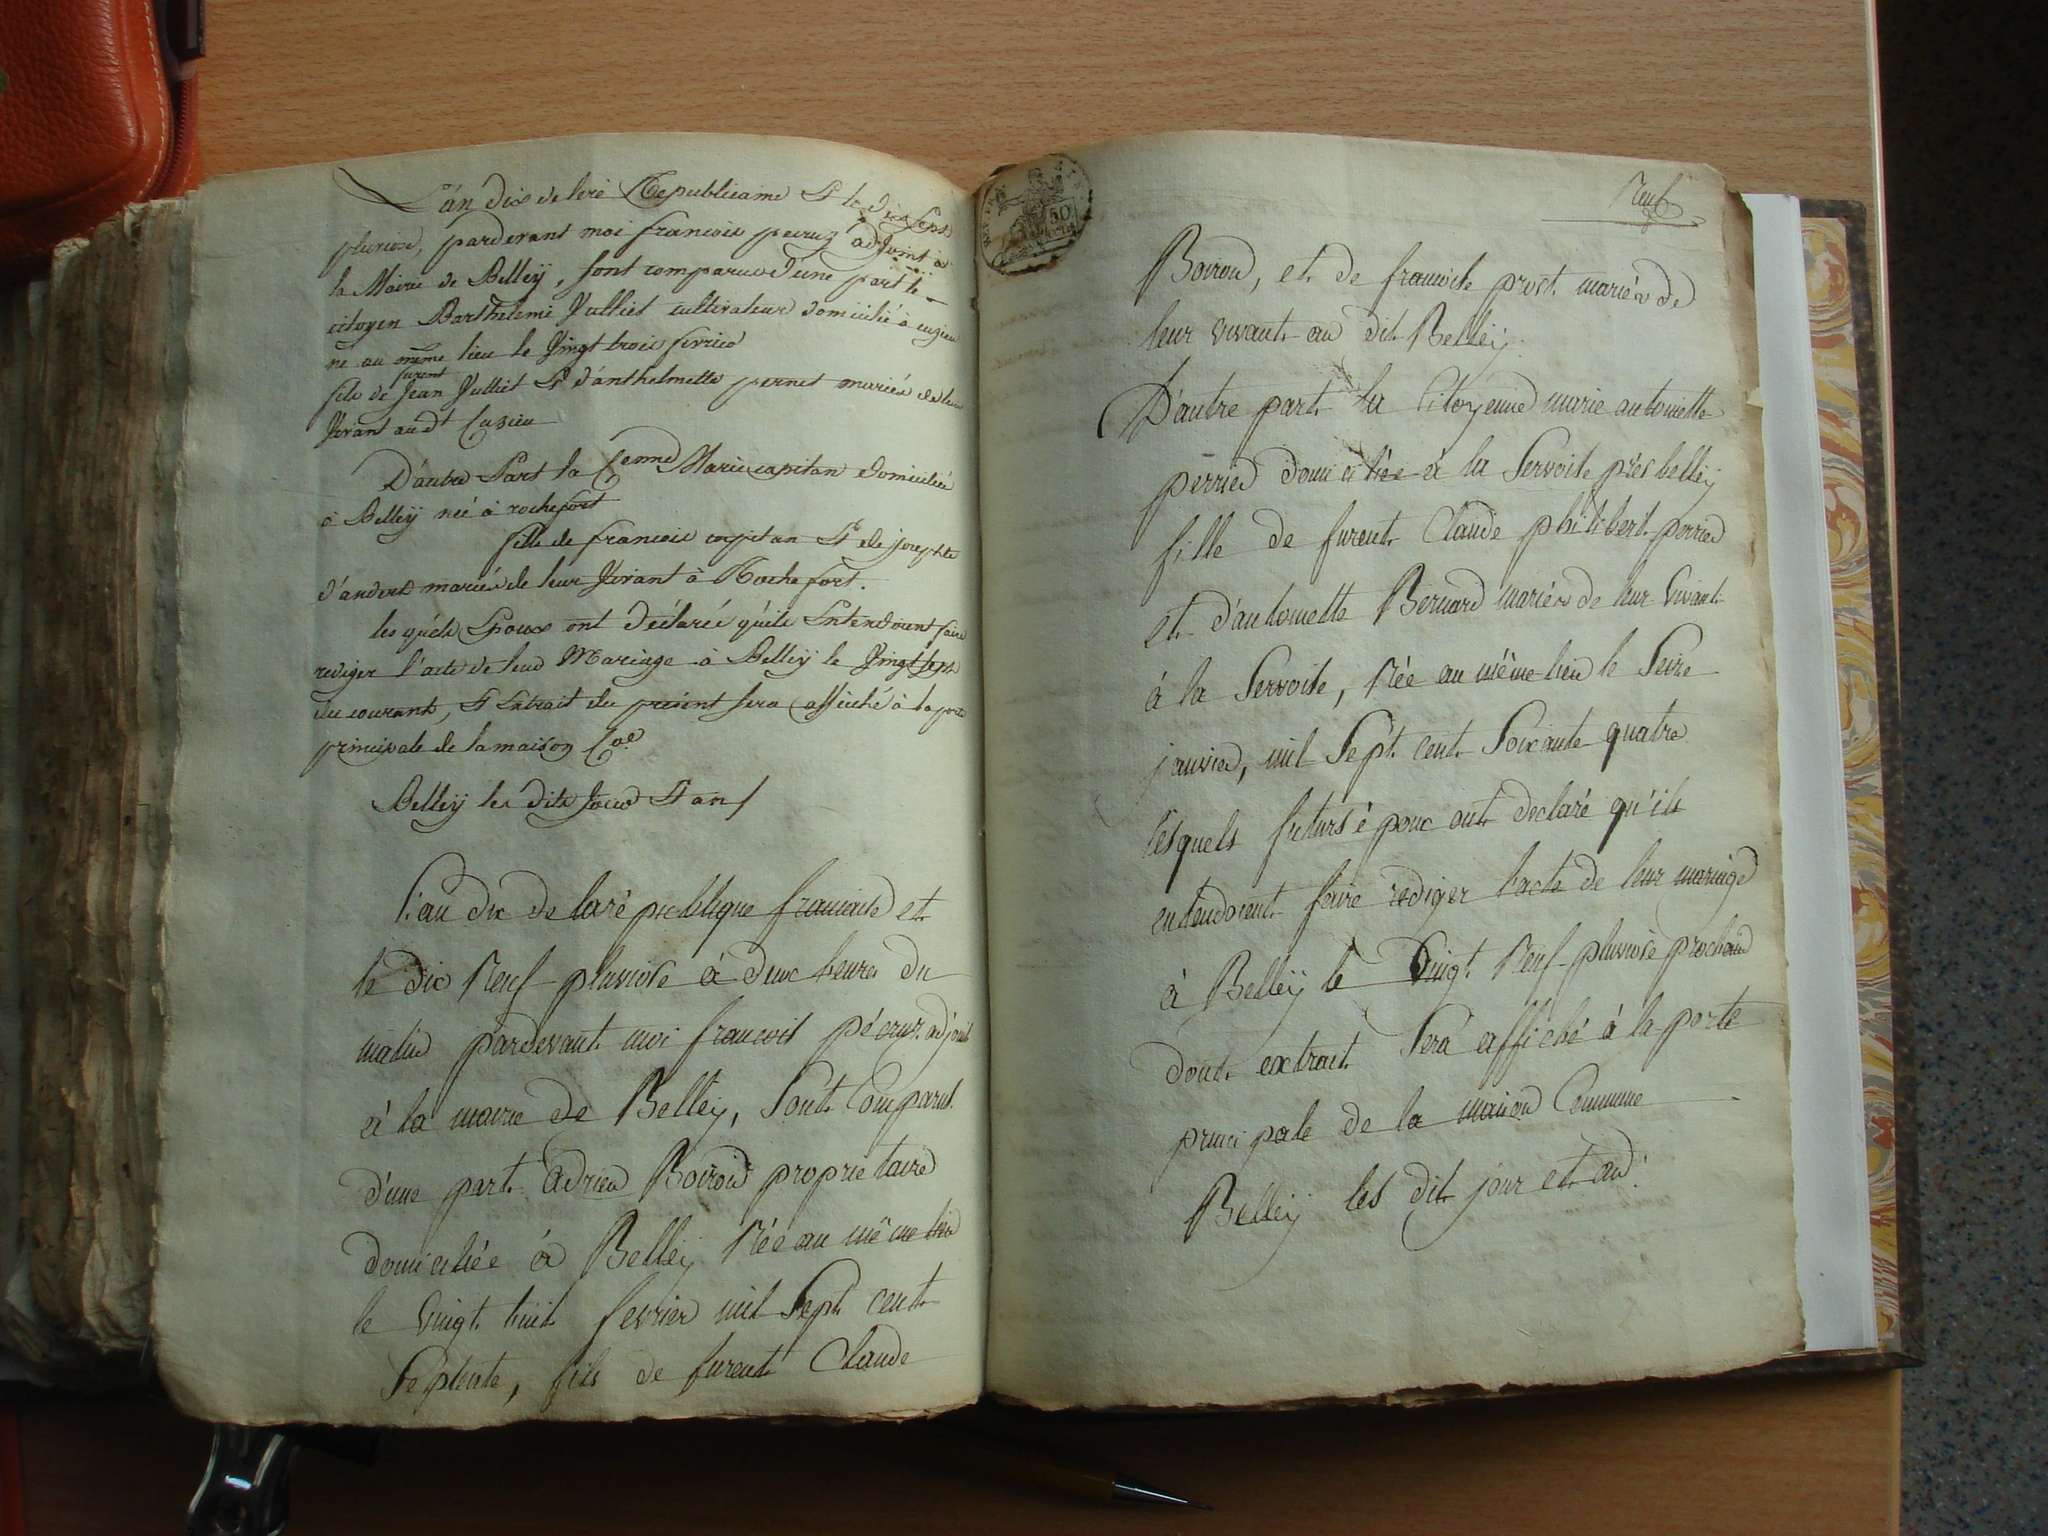 L'an dix de l'ere Republicaine Et le dix sept
pluviose, pardevant moi francois peeruz adjoint à
la Mairie de Belleÿ, sont comparus d'une part le
citoyen Barthelemi Julliet cultivateur domicilié à cuzieu
né au même lieu le Vingt trois fevrier
furent
fils de Jean Julliet Et d'anthelmette pernet mariés de leur
Vivant au dt Cusieu
D'autre Part la Cenne Marie capitan domiciliée
à Belleÿ née à rochefort
fille de francois capitan Et de josephte
d'andert mariés de leur Vivant à Rochefort.
les quels Epoux ont déclaré qu'ils Entendoient faire
rediger l'acte de leur Mariage à Belleÿ le Vingt sept
du courant, Et Extrait du présent sera affiché à la porte
principale de la maison Coe
Belleÿ les dits Jour Et an
L'an dix de la ré publique francaise et
le dix Neuf pluviose à deux heures du
matin pardevant moi francois pécruz adjoint
à la mairie de Belleÿ, sont Comparus
d'une part adrien Boirod proprietaire
domiciliée à Belleÿ Née au même lieu
le Vingt huit fevrier mil Sept cent
Septente, fils de furent Claude
Neuf
50
Boirod, et de francoise prost mariés de
leur vivant au dit Belleÿ
D'autre part la Citoyenne marie antoinette
perrier domiciliée à la Servoite près belleÿ
fille de furent Claude philibert perrier
et d'antoinette Bernard mariés de leur Vivant
à la Servoite, Née au même lieu le Seize
janvier, mil Sept cent Soixante quatre
lesquels futurs époux ont declaré qu'ils
entendoient faire rediger l'acte de leur mariage
à Belleÿ le Vingt Neuf pluviose prochain
dont extrait Sera affiché à la porte
principale de la maison Commune
Belleÿ les dit jour et an.